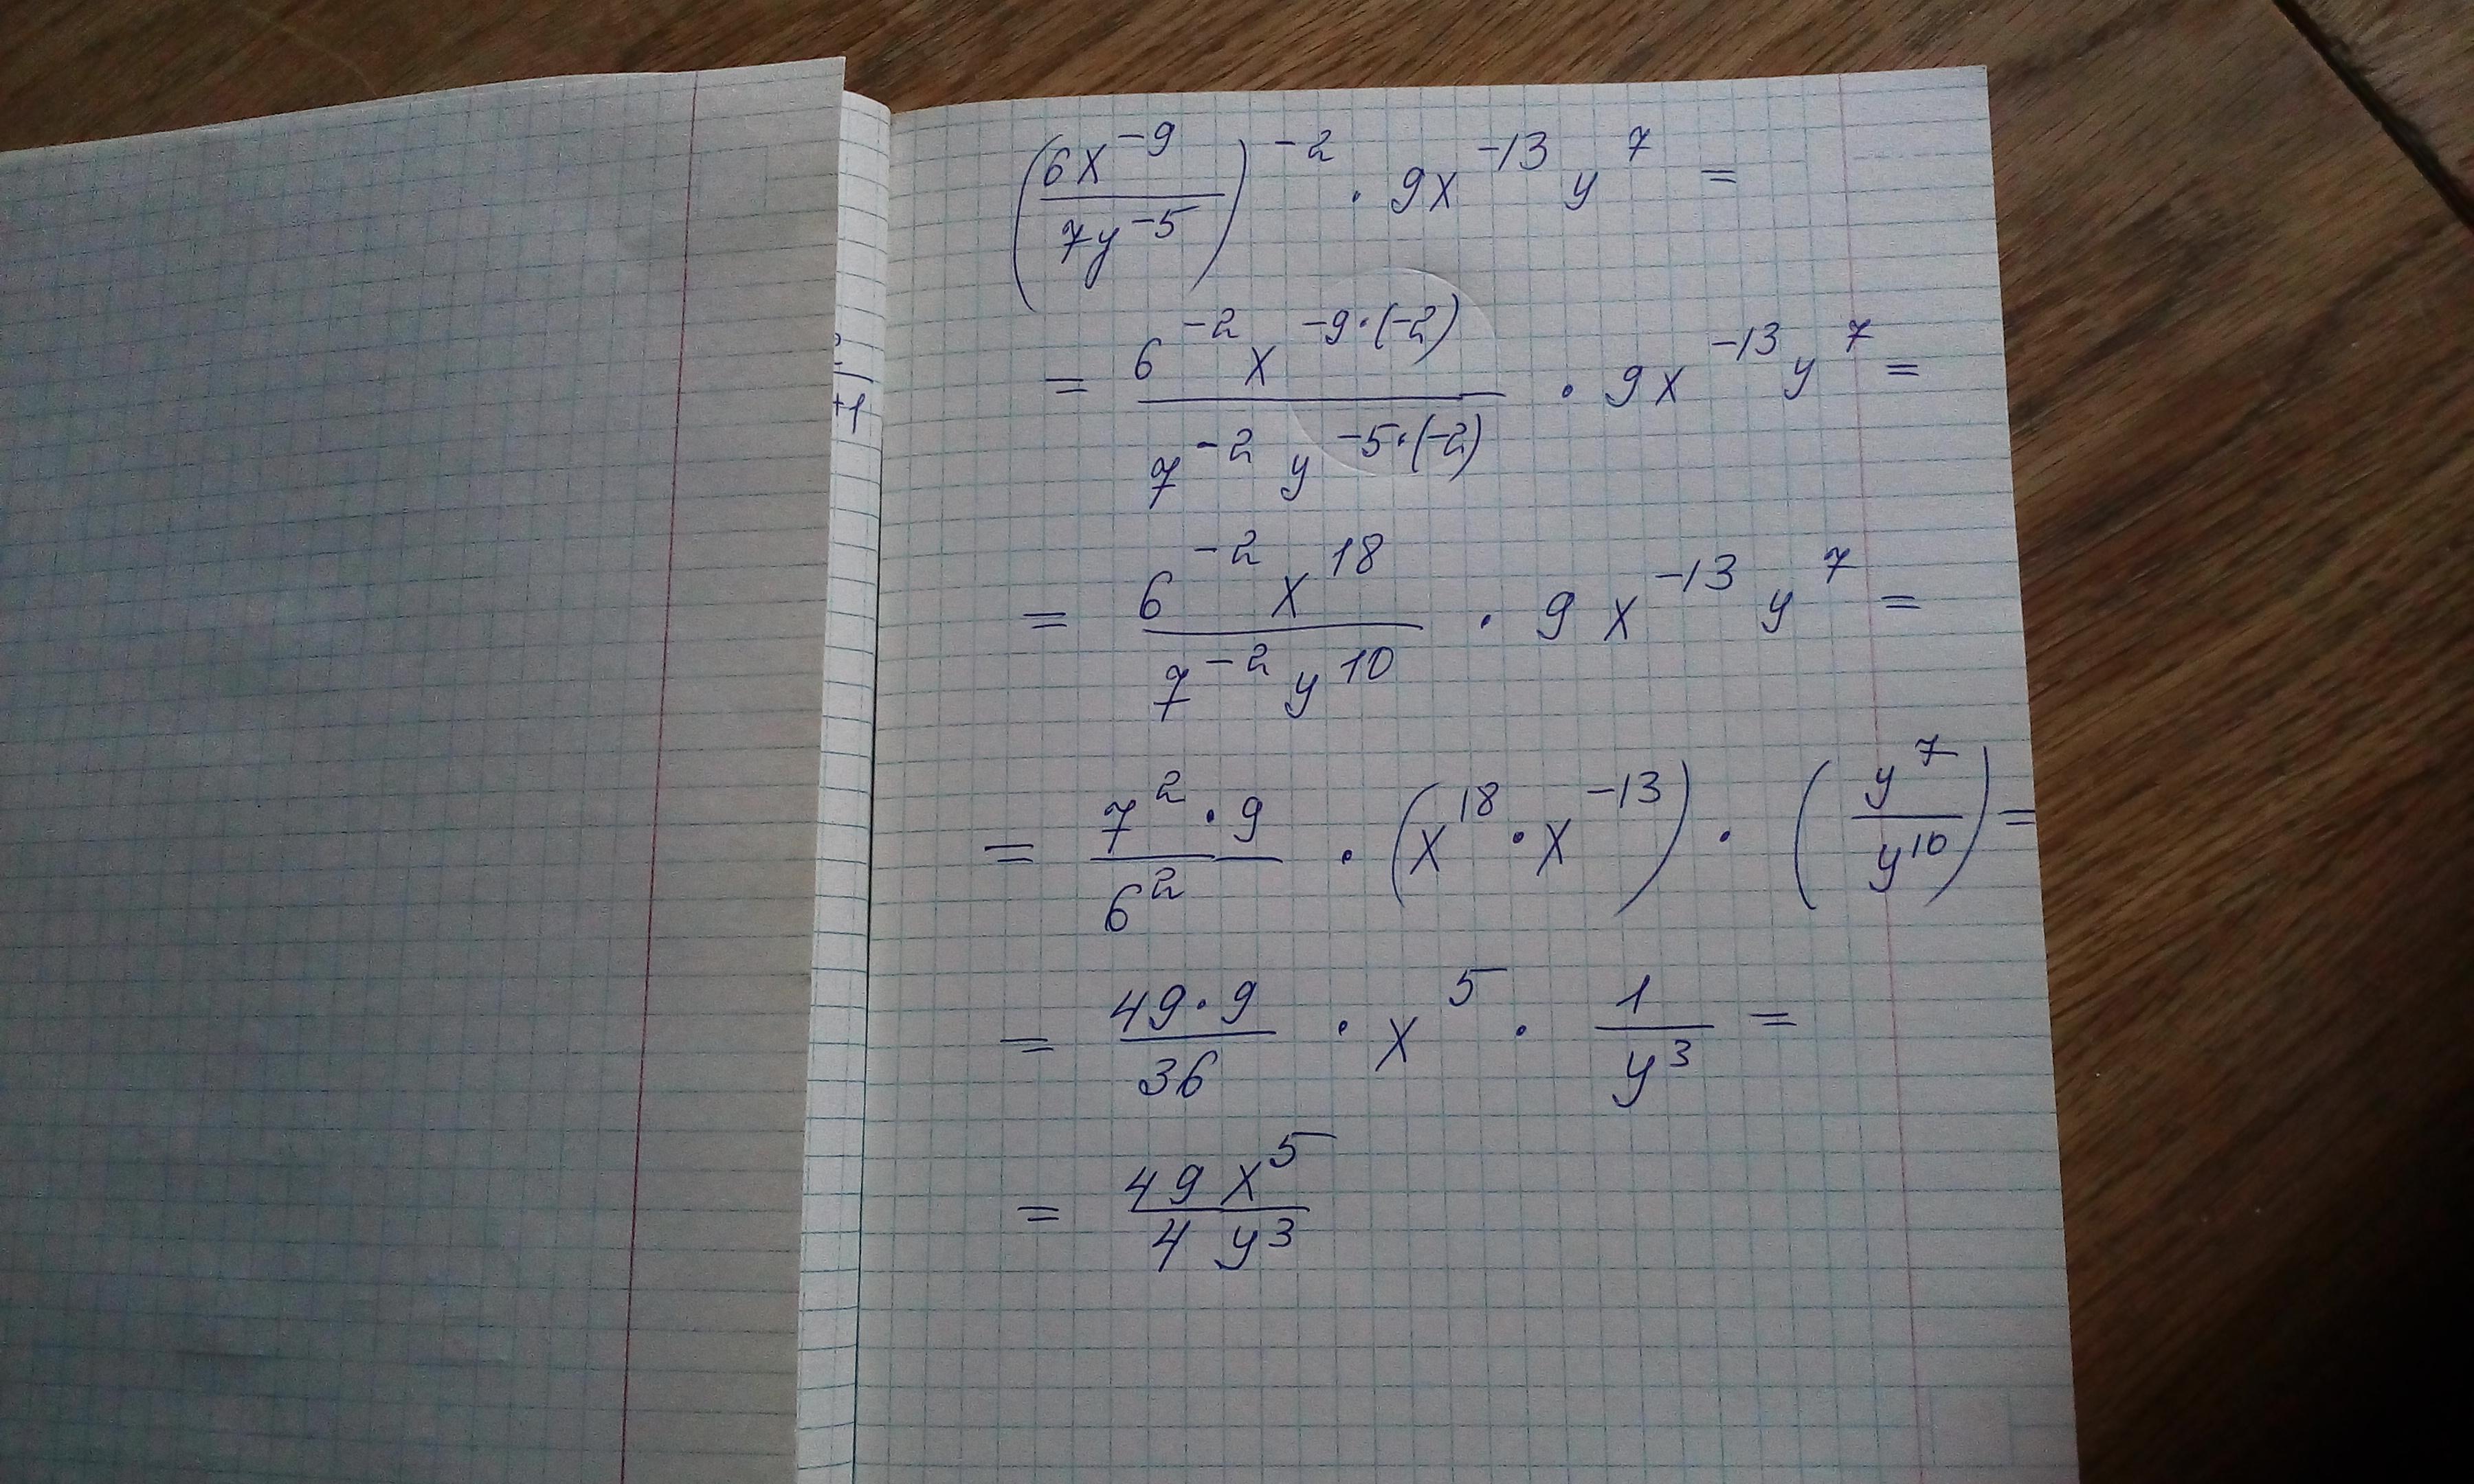 (6x^-9 / 7y^-5)^-2 · 9x^-13 y^7 =
= 6^-2 x^-9·(-2) / 7^-2 y^-5·(-2) · 9x^-13 y^7 =
= 6^-2 x^18 / 7^-2 y^10 · 9x^-13 y^7 =
= 7^2 · 9 / 6^2 · (x^18 · x^-13) · (y^7 / y^10) =
= 49 · 9 / 36 · x^5 · 1 / y^3 =
= 49x^5 / 4y^3
+1